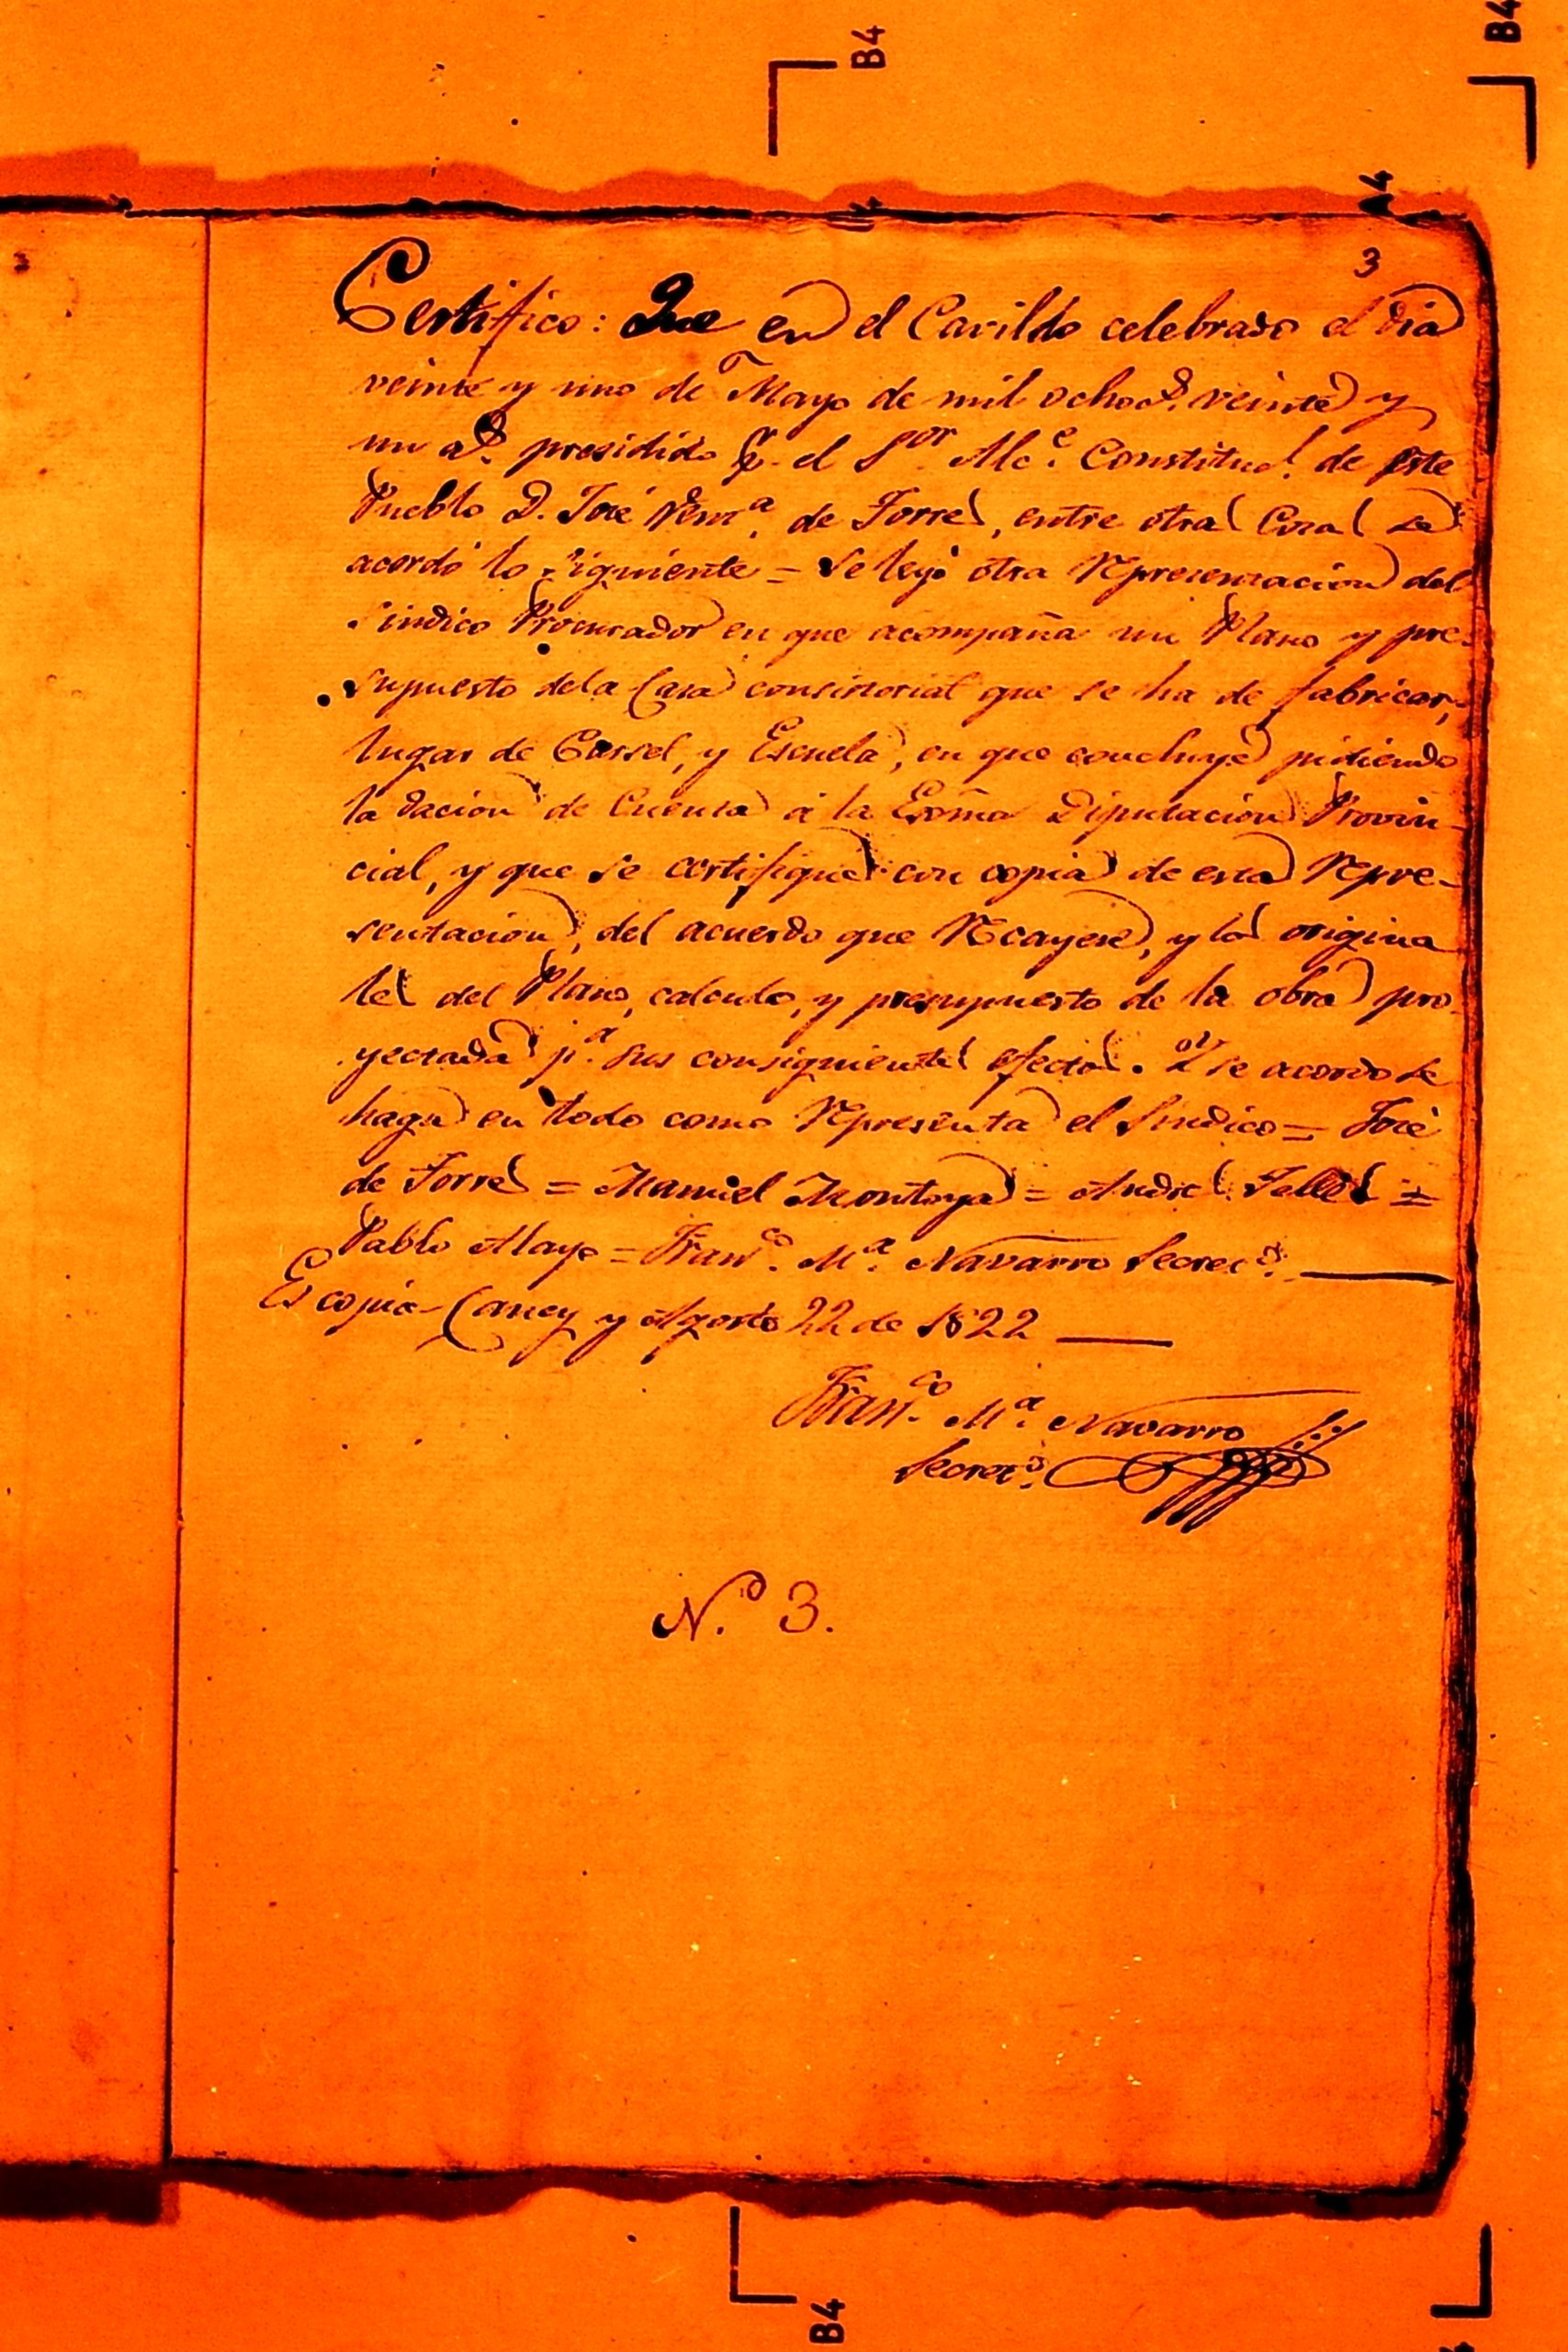 B4
B4
A4
3
3
Certifico: Que en el Cavildo celebrado el dia
veinte y uno de Mayo de mil ochos. veinte y
un as. presidido p. el Sor. Alce. Constitul. de este
Pueblo D. José Venra. de Torres, entre otras Cosas se
acordó lo siguiente = Se leyó otra Representacion del
Sindico Procurador en que acompaña un Plano y pre-
supuesto dela Casa consistorial que se ha de fabricar,
lugar de Carsel, y Escuela, en que concluye pidiendo
la dacion de Cuenta á la Exma Diputacion Provin-
cial, y que se certifique con copia de esta Repre-
sentacion, del acuerdo que Recayere, y los origina
les del Plano, calculo, y presupuesto de la obra pro-
yectada pa. sus consiguientes efectos. Y se acordo se
haga en todo como Representa el Sindico = José
de Torres = Manuel Montoya = Andres Telles =
Pablo Alayo = Franco. Ma. Navarro Secreto.
Es copia Caney y Agosto 22 de 1822
Franco. Ma. Navarro
Secreto.
N.o 3.
B4